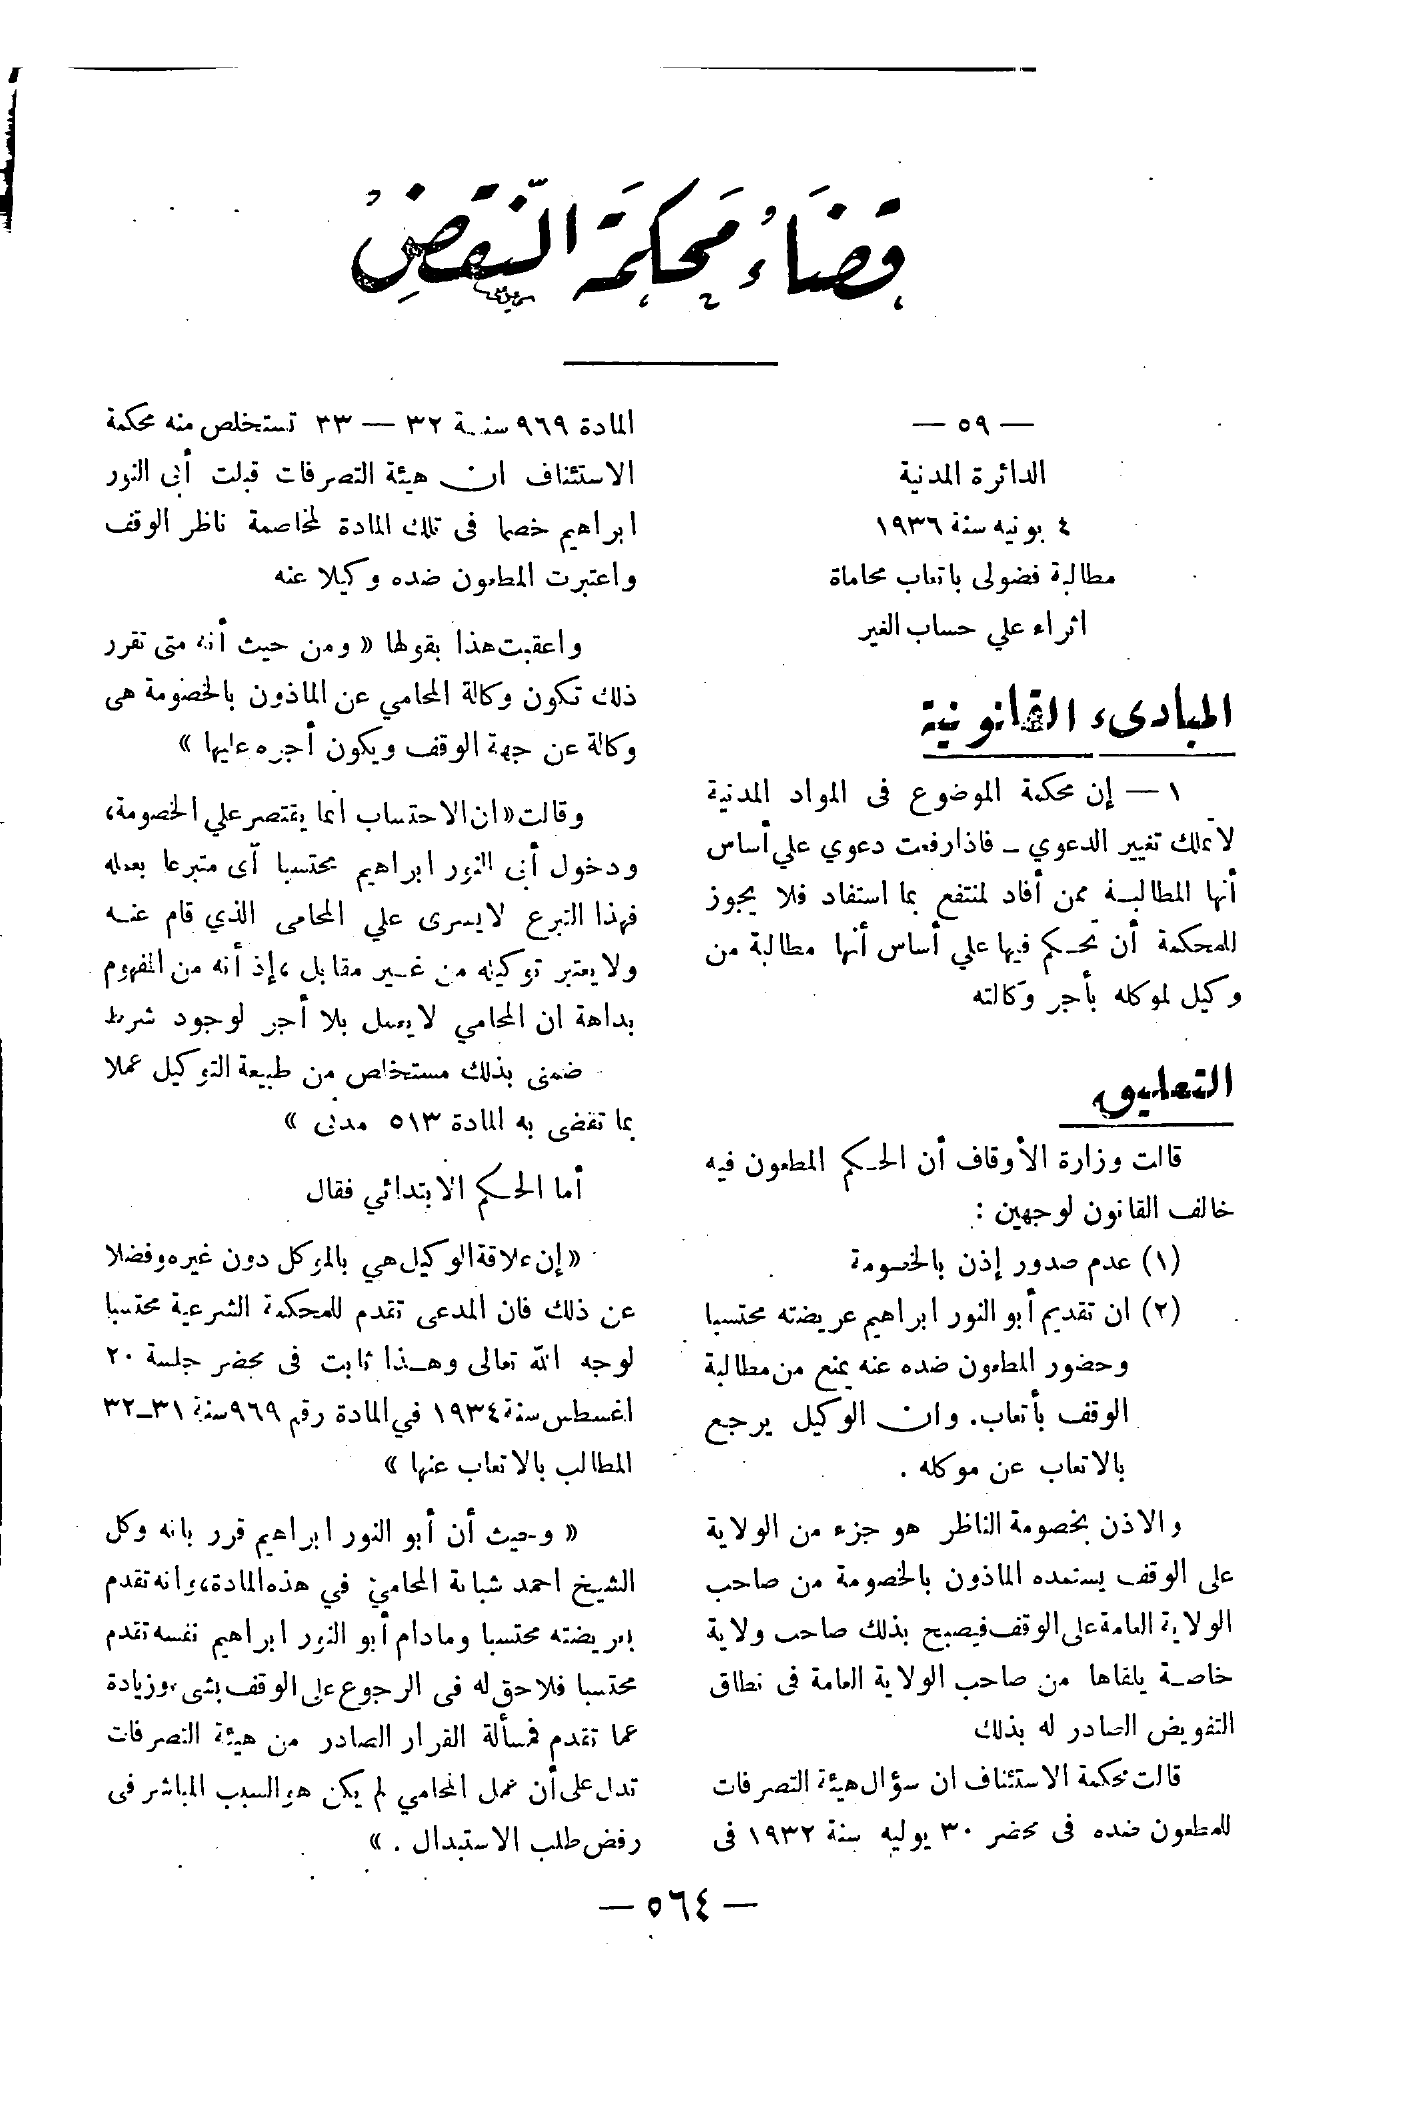 قضاء محكمة النقض
— ٥٩ —
الدائرة المدنية
٤ يونيه سنة ١٩٣٦
مطالبة فضولى باتعاب محاماة
اثراء علي حساب الغير
المبادىء القانونية
١ — إن محكمة الموضوع فى المواد المدنية
لاتملك تغيير الدعوي - فاذا رفعت دعوي علي أساس
أنها المطالبة ممن أفاد لمنتفع بما استفاد فلا يجوز
للمحكمة أن تحكم فيها علي أساس أنها مطالبة من
وكيل لموكله بأجر وكالته
التعليق
قالت وزارة الأوقاف أن الحكم المطعون فيه
خالف القانون لوجهين :
(١) عدم صدور إذن بالخصومة
(٢) ان تقديم أبو النور ابراهيم عريضته محتسبا
وحضور المطعون ضده عنه يمنع من مطالبة
الوقف بأتعاب. وان الوكيل يرجع
بالاتعاب عن موكله .
والاذن بخصومة الناظر هو جزء من الولاية
على الوقف يستمده الماذون بالخصومة من صاحب
الولاية العامة على الوقف فيصبح بذلك صاحب ولاية
خاصة يلقاها من صاحب الولاية العامة فى نطاق
التفويض الصادر له بذلك
قالت محكمة الاستئناف ان سؤال هيئة التصرفات
للمطعون ضده فى محضر ٣٠ يوليه سنة ١٩٣٢ فى
المادة ٩٦٩ سنة ٣٢ — ٣٣ تستخلص منه محكمة
الاستئناف ان هيئة التصرفات قبلت أبى النور
ابراهيم خصما فى تلك المادة لمخاصمة ناظر الوقف
واعتبرت المطعون ضده وكيلا عنه
واعقبت هذا بقولها « ومن حيث أنه متى تقرر
ذلك تكون وكالة المحامي عن الماذون بالخصومة هى
وكالة عن جهة الوقف ويكون أجره عليها »
وقالت «ان الاحتساب انما يقتصر علي الخصومة،
ودخول أبى النور ابراهيم محتسبا آى متبرعا بعمله
فهذا التبرع لايسرى علي المحامى الذي قام عنه
ولا يعتبر توكيله من غير مقابل ،إذ أنه من المفهوم
بداهة ان المحامي لايعمل بلا أجر لوجود شرط
ضمنى بذلك مستخلص من طبيعة التوكيل عملا
بما تقضى به المادة ٥١٣ مدنى »
أما الحكم الابتدائي فقال
«إن علاقة الوكيل هي بالموكل دون غيره وفضلا
عن ذلك فان المدعى تقدم للمحكمة الشرعية محتسبا
لوجه الله تعالى وهذا ثابت فى محضر جلسة ٢٠
اغسطس سنة ١٩٣٤ في المادة رقم ٩٦٩ سنة ٣١-٣٢
المطالب بالاتعاب عنها »
« وحيث أن أبو النور ابراهيم قرر بانه وكل
الشيخ احمد شبانة المحامي في هذه المادة،وانه تقدم
بعريضته محتسبا ومادام أبو النور ابراهيم نفسه تقدم
محتسبا فلاحق له فى الرجوع على الوقف بشىء،وزيادة
عما تقدم فمسألة القرار الصادر من هيئة التصرفات
تدل على أن عمل المحامي لم يكن هو السبب المباشر فى
رفض طلب الاستبدال . »
— ٥٦٤ —